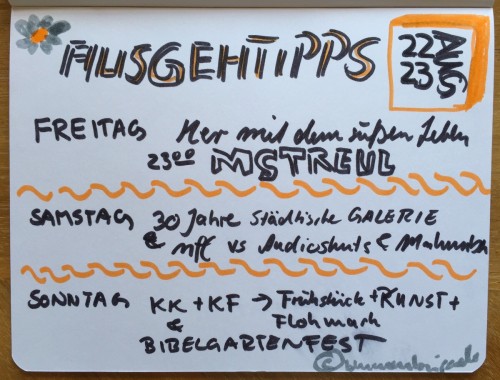 AUSGEHTIPPS
22
23
AUG
FREITAG Her mit dem süßen Leben
23⁰⁰ MSTREUL
SAMSTAG 30 Jahre Städtische GALERIE
& MFC vs &
SONNTAG KK + KF → Frühstück + KUNST +
& Flohmarkt
BIBELGARTENFEST
©